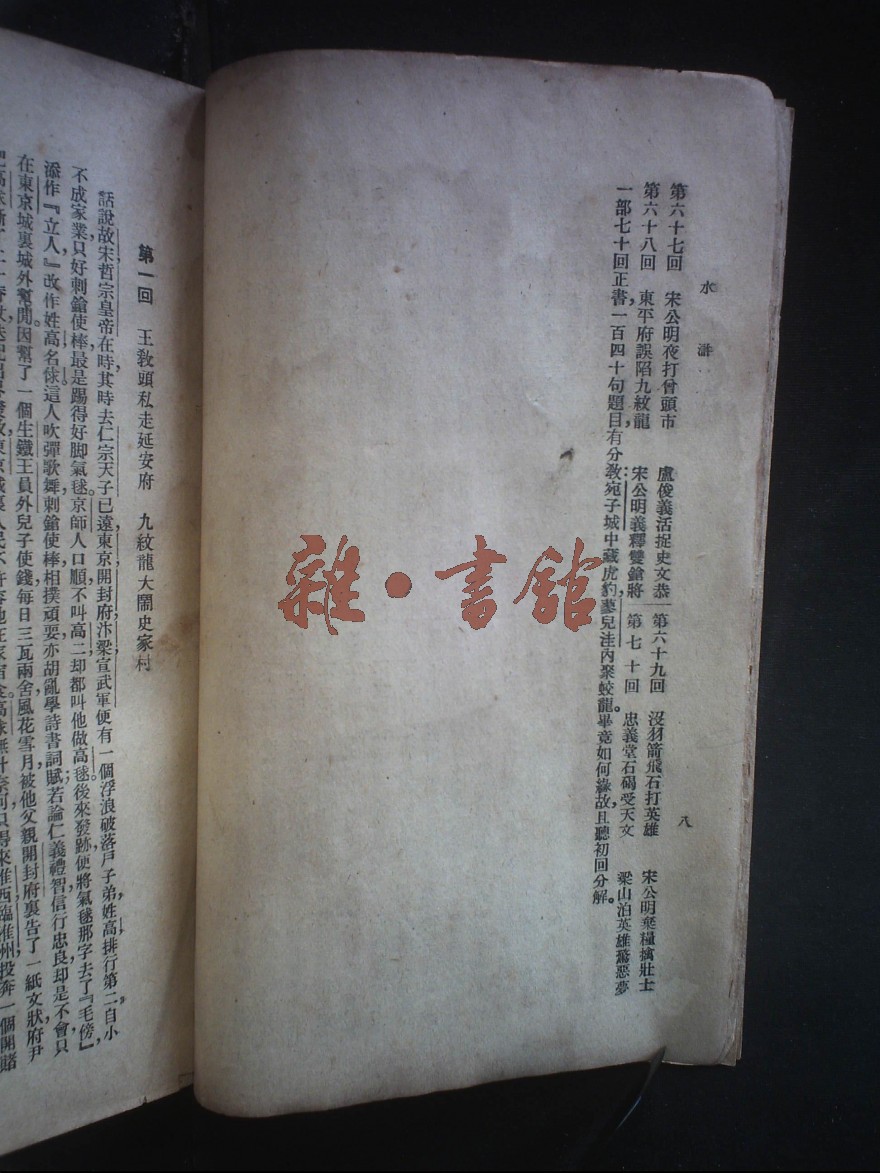 水滸
八
第六十七回 宋公明夜打曾頭市 盧俊義活捉史文恭
第六十八回 東平府誤陷九紋龍 宋公明義釋雙鎗將
第六十九回 沒羽箭飛石打英雄 宋公明棄糧擒壯士
第七十回 忠義堂石碣受天文 梁山泊英雄驚惡夢
一部七十回正書，一百四十句題目，有分教：宛子城中藏虎豹，蓼兒洼內聚蛟龍。畢竟如何緣故，且聽初回分解。
第一回 王教頭私走延安府 九紋龍大鬧史家村
話說故宋哲宗皇帝在時，其時去仁宗天子已遠，東京開封府汴梁宣武軍便有一個浮浪破落戶子弟，姓高，排行第二，自小
不成家業，只好刺鎗使棒，最是踢得好脚氣毬。京師人口順，不叫高二，却都叫他做高毬。後來發跡，便將氣毬那字去了『毛傍』
添作『立人』，改作姓高，名俅。這人吹彈歌舞，刺鎗使棒，相撲頑耍，亦胡亂學詩書詞賦；若論仁義禮智信行忠良，却是不會，只
在東京城裏城外幫閒。因幫了一個生鐵王員外兒子使錢，每日三瓦兩舍，風花雪月，被他父親開封府裏告了一紙文狀，府尹
東京城裏人民不許容他在家宿食。高俅無計奈何，只得來淮西臨淮州投奔一個開賭
雜·書館